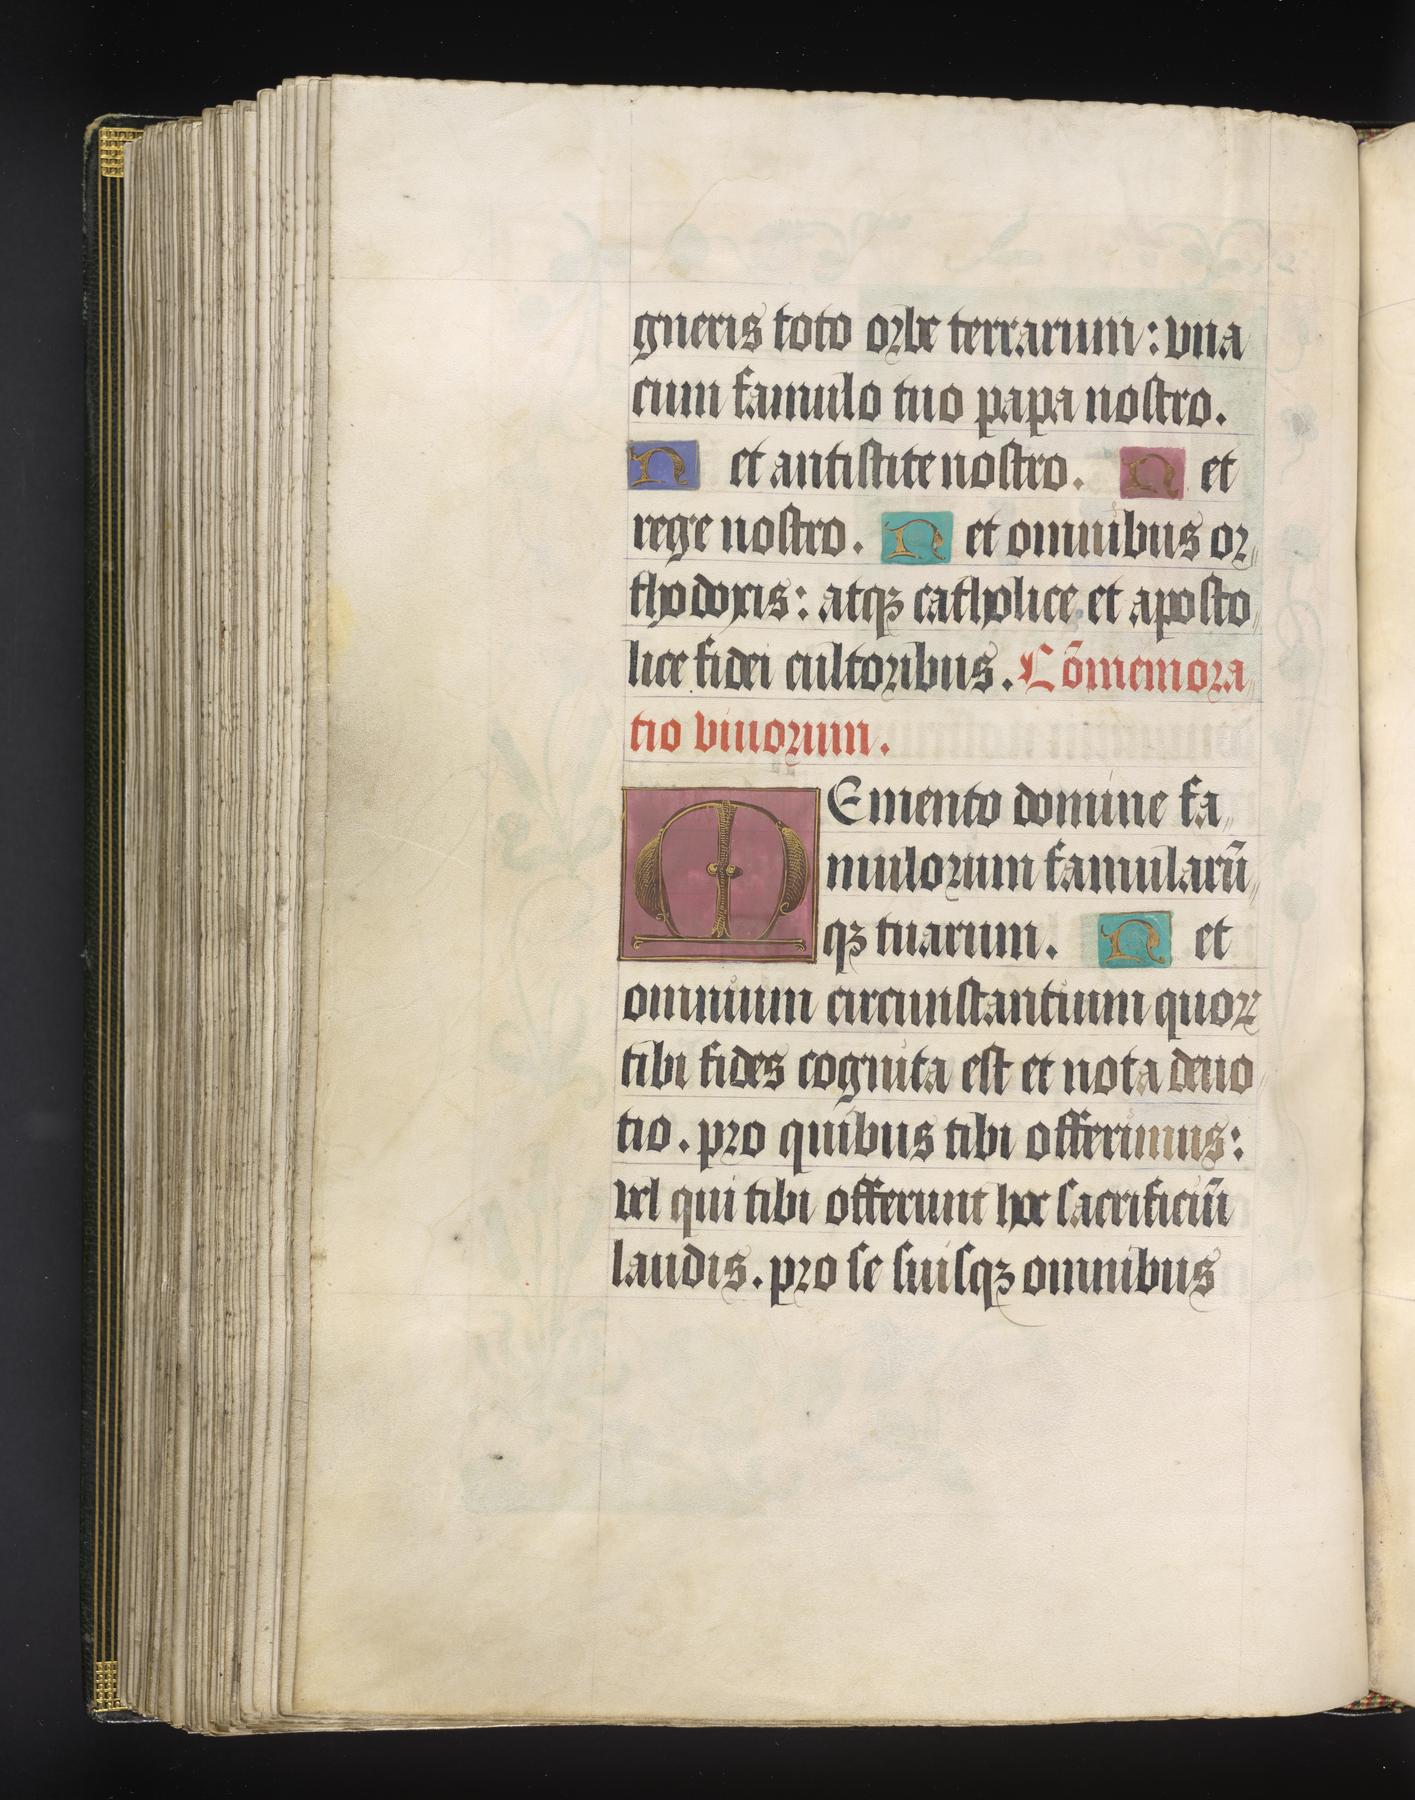 gneris toto orbe terrarum: vna
cum famulo tuo papa nostro.
N et antistite nostro. N et
rege nostro. N et omnibus or
thodoxis: atqꝫ catholice et aposto
lice fidei cultoribus. Cõmemora
tio viuorum.
MEmento domine fa
mulorum famularū
qꝫ tuarum. N et
omnium circunstantium quoꝝ
tibi fides cognita est et nota deuo
tio. pro quibus tibi offerimus:
vel qui tibi offerunt hoc sacrificiū
laudis. pro se suisqꝫ omnibus